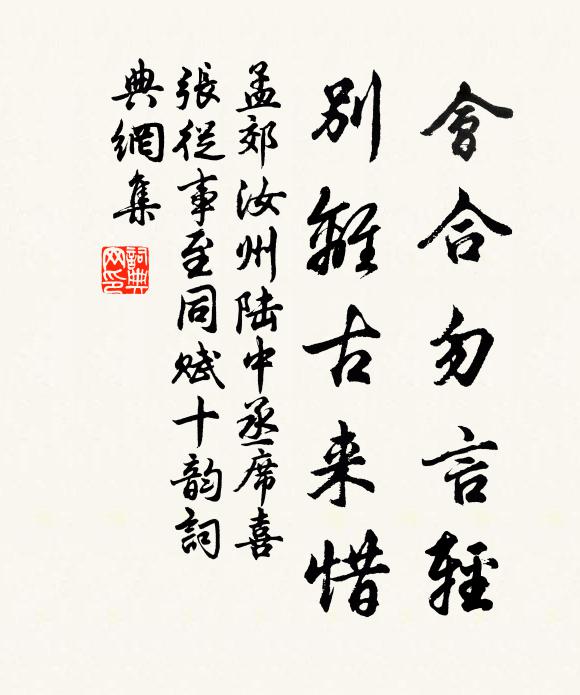 會合勿言輕
別離古来惜
孟郊汝州陆中丞席喜
張從事至同赋十韵詞
典網集
詞典网印